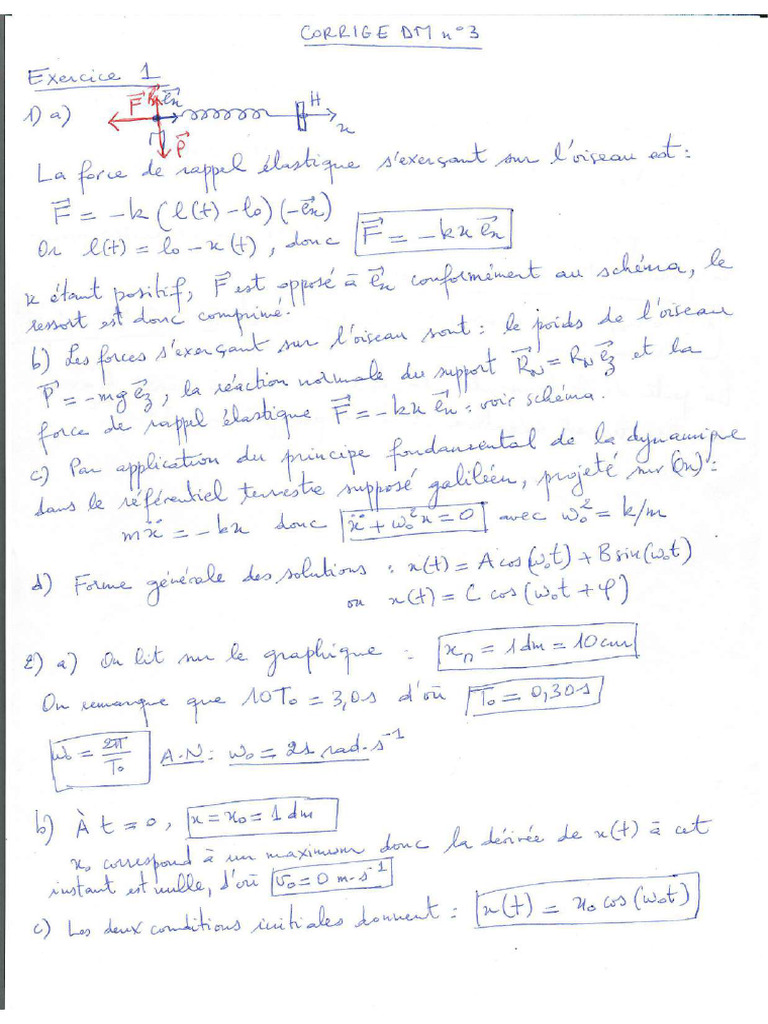 CORRIGE DM n°3
Exercice 1
1) a) F⃗ R⃗N e⃗x H x M P⃗
La force de rappel élastique s'exerçant sur l'oiseau est :
F⃗ = -k (l(t) - l0) (-e⃗x)
Or l(t) = l0 - x(t), donc F⃗ = -kx e⃗x
x étant positif, F⃗ est opposé à e⃗x conformément au schéma, le
ressort est donc comprimé.
b) Les forces s'exerçant sur l'oiseau sont : le poids de l'oiseau
P⃗ = -mg e⃗z, la réaction normale du support R⃗N = RN e⃗z et la
force de rappel élastique F⃗ = -kx e⃗x : voir schéma.
c) Par application du principe fondamental de la dynamique
dans le référentiel terrestre supposé galiléen, projeté sur (x) :
mẍ = -kx donc ẍ + ω0²x = 0 avec ω0² = k/m
d) Forme générale des solutions : x(t) = A cos(ω0t) + B sin(ω0t)
ou x(t) = C cos(ω0t + φ)
2) a) On lit sur le graphique : xm = 1 dm = 10 cm
On remarque que 10T0 = 3,0 s d'où T0 = 0,30 s
ω0 = 2π/T0 A.N : ω0 = 21 rad.s⁻¹
b) À t = 0, x = x0 = 1 dm
x0 correspond à un maximum donc la dérivée de x(t) à cet
instant est nulle, d'où v0 = 0 m.s⁻¹
c) Les deux conditions initiales donnent : x(t) = x0 cos(ω0t)